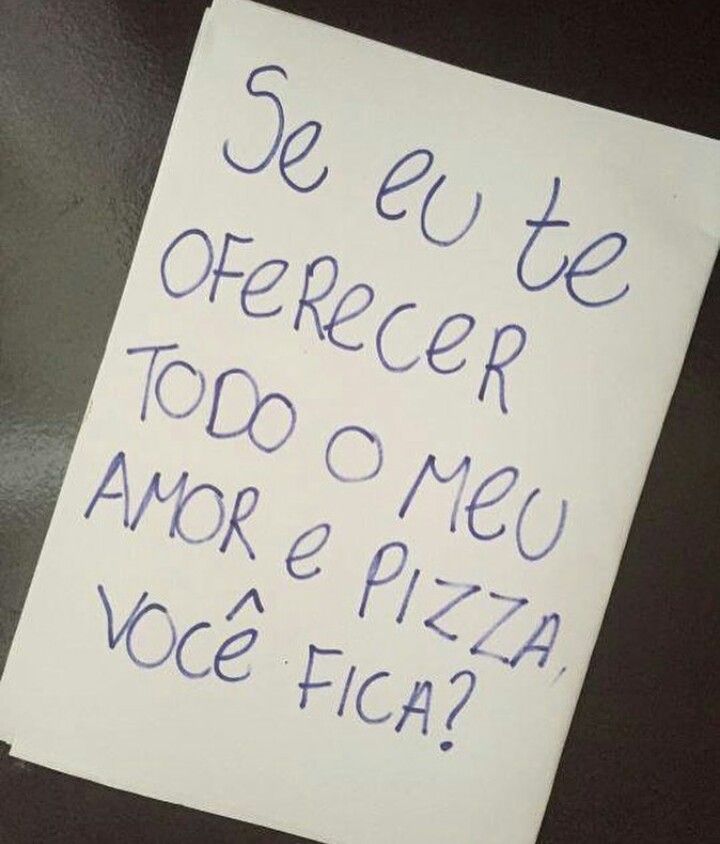 Se eu te
OFeRecer
TODO O Meu
AMOR e PIZZA,
VOCÊ FICA?